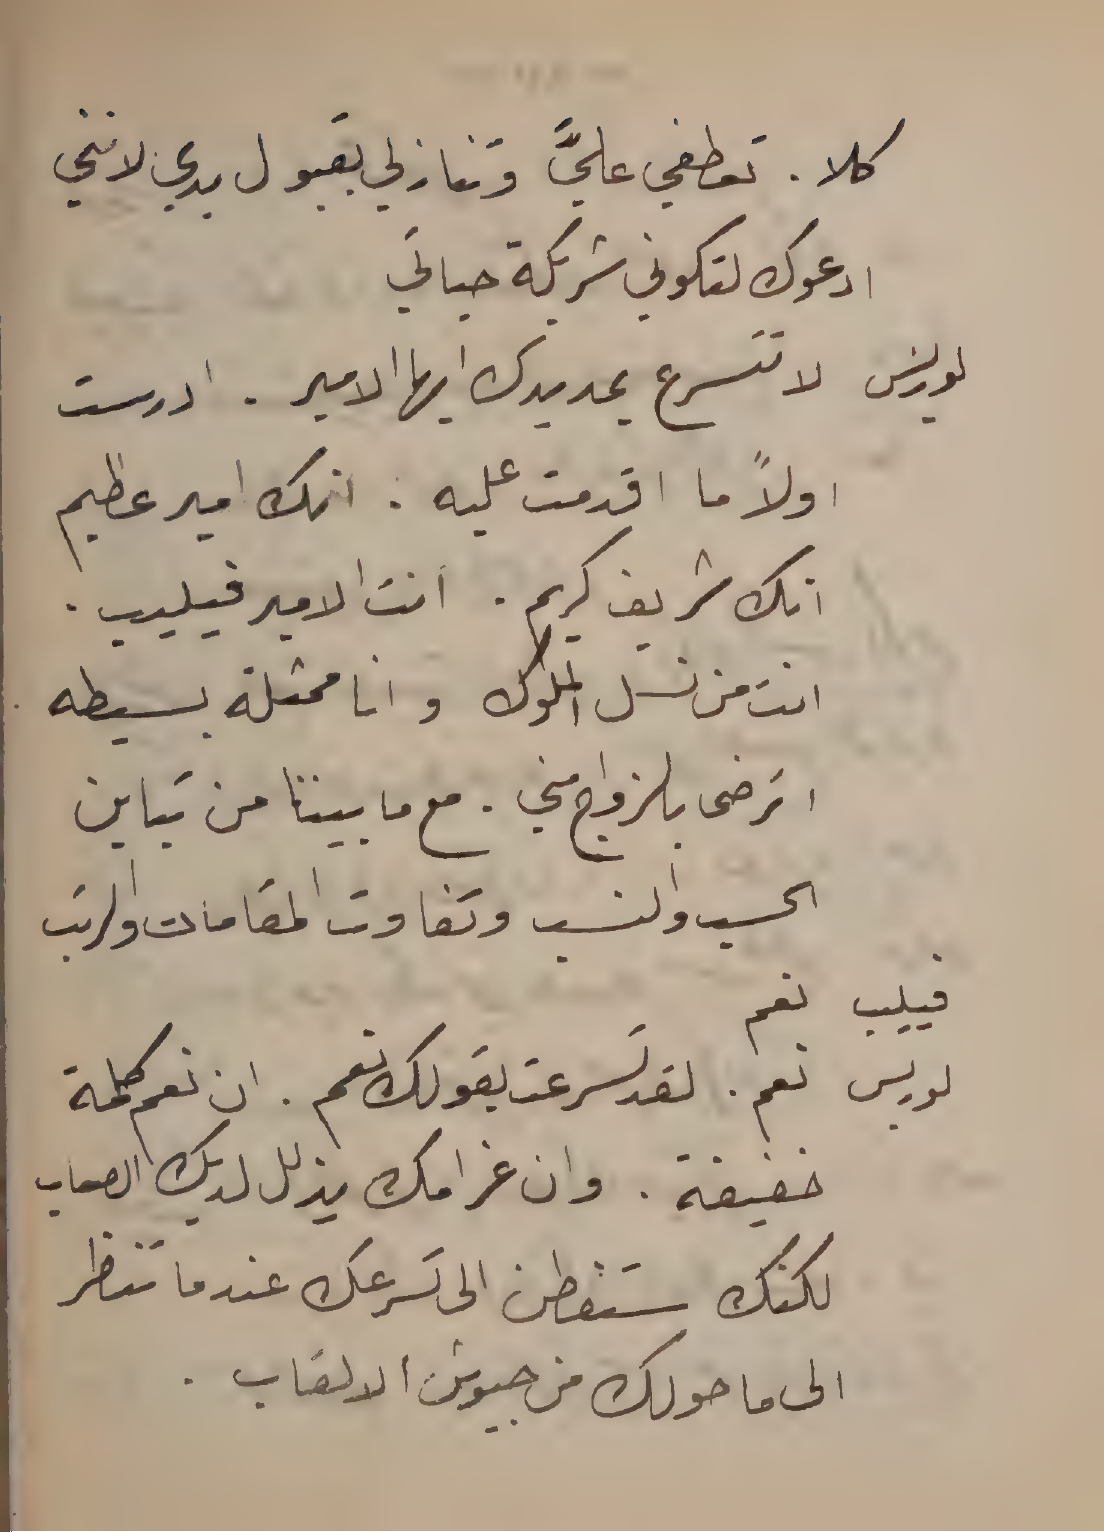 كلا . تعطفي عليَّ وتنازلي بقبول يدي لانني
ادعوك لتكوني شريكة حياتي
لوريس لا تتسرع بمد يدك ايها الامير . ادرست
اولاً ما اقدمت عليه . انك امير عظيم
انك شريف كريم . انت الامير فيليب .
انت من نسل الملوك و انا ممثلة بسيطه
اترضى بالزواج مني . مع ما بيننا من تباين
الحسب والنسب وتفاوت المقامات والرتب
فيليب نعم
لوريس نعم . لقد تسرعت بقولك نعم . ان نعم كلمة
خفيفة . وان غرامك يذلل لديك الصعاب
لكنك ستفطن الى تسرعك عندما تنظر
الى ما حولك من جيوش الالقاب .